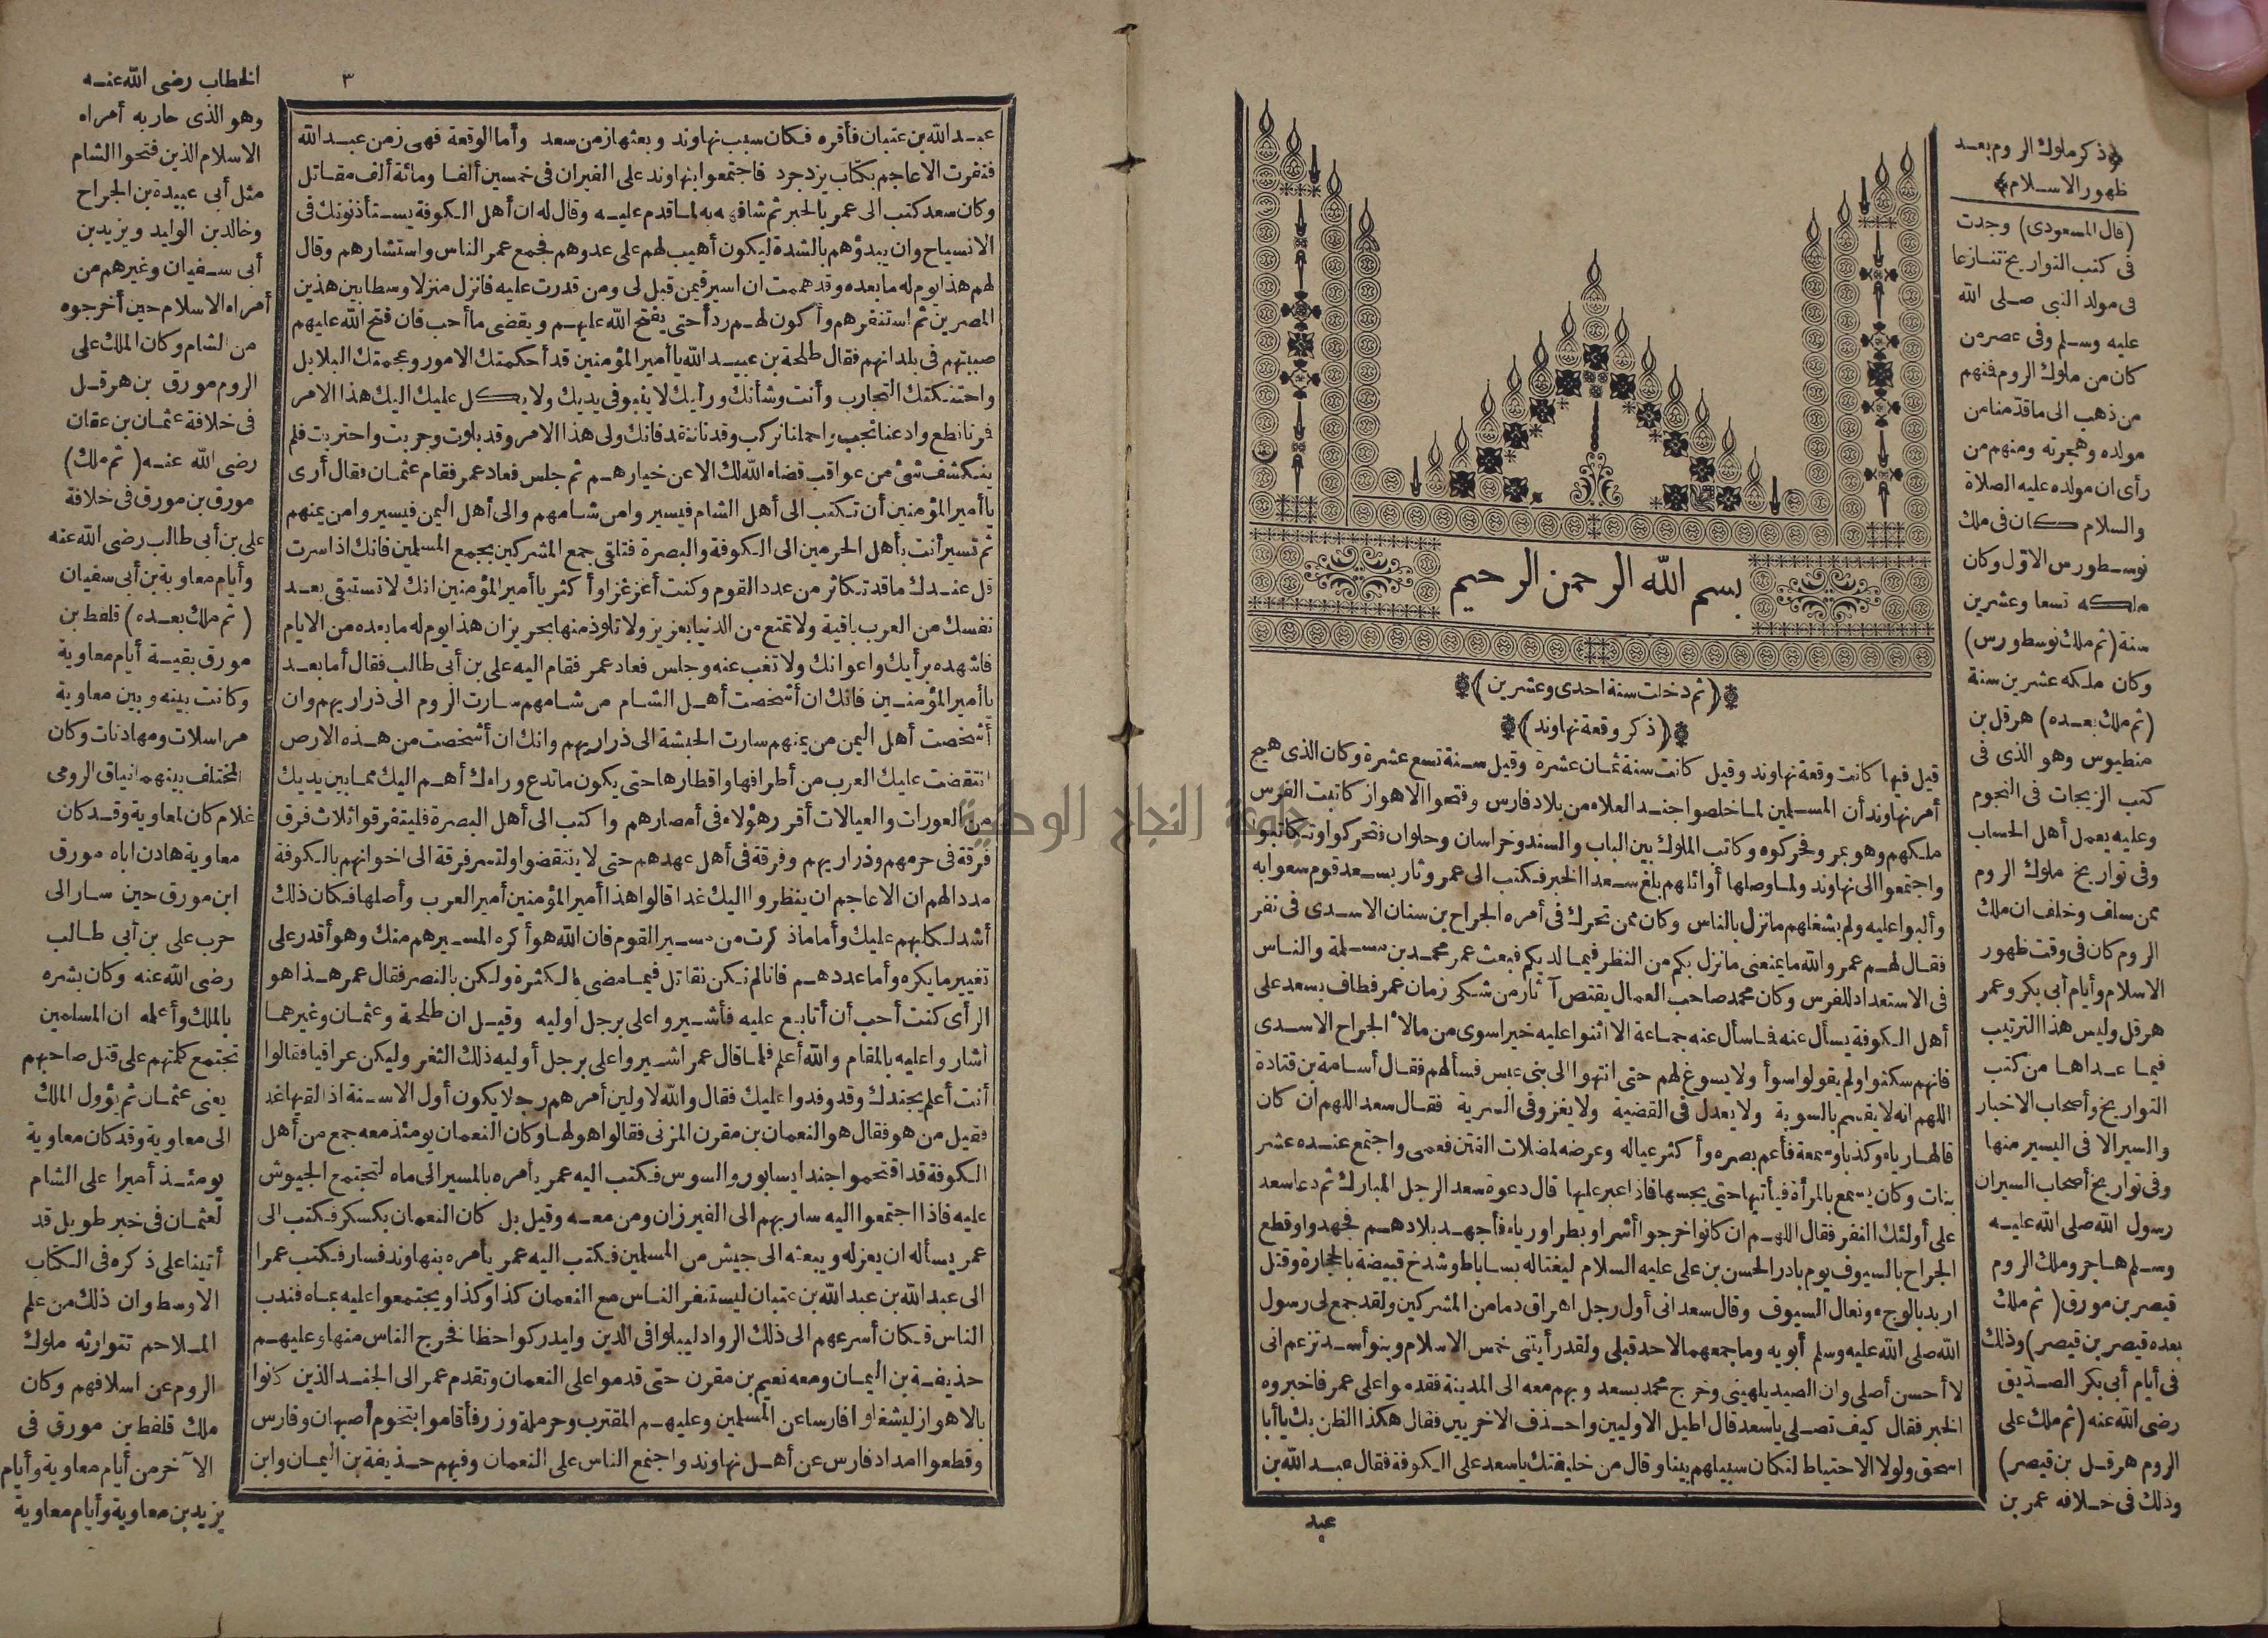 ﴿ذكر ملوك الروم بعد
ظهور الاسلام﴾
(قال المسعودى) وجدت
فى كتب التواريخ تنازعا
فى مولد النبى صلى الله
عليه وسلم وفى عصر من
كان من ملوك الروم فمنهم
من ذهب الى ما قدمنا من
مولده وهجرته ومنهم من
رأى ان مولده عليه الصلاة
والسلام كان فى ملك
نوسطورس الاول وكان
ملكه تسعا وعشرين
سنة (ثم ملك نوسطورس)
وكان ملكه عشرين سنة
(ثم ملك بعده) هرقل بن
منطيوس وهو الذى فى
كتب الزيجات فى النجوم
وعليه يعمل أهل الحساب
وفى تواريخ ملوك الروم
ممن سلف وخلف ان ملك
الروم كان فى وقت ظهور
الاسلام وأيام أبى بكر وعمر
هرقل وليس هذا الترتيب
فيما عداها من كتب
التواريخ وأصحاب الاخبار
والسير الا فى اليسير منها
وفى تواريخ أصحاب السير ان
رسول الله صلى الله عليه
وسلم هاجر وملك الروم
قيصر بن مورق (ثم ملك
بعده قيصر بن قيصر) وذلك
فى أيام أبى بكر الصديق
رضى الله عنه (ثم ملك على
الروم هرقل بن قيصر)
وذلك فى خلافه عمر بن
بسم الله الرحمن الرحيم
(ثم دخلت سنة احدى وعشرين)
(ذكر وقعة نهاوند)
قيل فيها كانت وقعة نهاوند وقيل كانت سنة ثمان عشرة وقيل سنة تسع عشرة وكان الذى هيج
أمر نهاوند أن المسلمين لما خلصوا جند العلاء من بلاد فارس وفتحوا الاهواز كاتبت الفرس
ملكهم وهو بمرو فحركوه وكاتب الملوك بين الباب والسند وخراسان وحلوان فتحركوا وتكاتبوا
واجتمعوا الى نهاوند ولما وصلها أوائلهم بلغ سعدا الخبر فكتب الى عمر وثار بسعد قوم سعوا به
وألبوا عليه ولم يشغلهم ما نزل بالناس وكان ممن تحرك فى أمره الجراح بن سنان الاسدى فى نفر
فقال لهم عمر والله ما يمنعنى ما نزل بكم من النظر فيما لديكم فبعث عمر محمد بن مسلمة والناس
فى الاستعداد للفرس وكان محمد صاحب العمال يقتص آثار من شكى زمان عمر فطاف بسعد على
أهل الكوفة يسأل عنه فما سأل عنه جماعة الا اثنوا عليه خيرا سوى من مالأ الجراح الاسدى
فانهم سكتوا ولم يقولوا سوأ ولا يسوغ لهم حتى انتهوا الى بنى عبس فسألهم فقال أسامة بن قتادة
اللهم انه لا يقسم بالسوية ولا يعدل فى القضية ولا يغزو فى السرية فقال سعد اللهم ان كان
قالها رياء وكذبا وسمعة فأعم بصره وأكثر عياله وعرضه لمضلات الفتن فعمى واجتمع عنده عشر
بنات وكان يسمع بالمرأة فيأتيها حتى يجسها فاذا عبر عليها قال دعوة سعد الرجل المبارك ثم دعا سعد
على أولئك النفر فقال اللهم ان كانوا خرجوا أشرا وبطرا ورياء فأجهد بلادهم فجهدوا وقطع
الجراح بالسيوف يوم بادر الحسن بن على عليه السلام ليغتاله بساباط وشدخ قبيصة بالحجارة وقتل
اربد بالوجء ونعال السيوف وقال سعد انى أول رجل اهراق دما من المشركين ولقد جمع لى رسول
الله صلى الله عليه وسلم أبويه وما جمعهما لاحد قبلى ولقد رأيتنى خمس الاسلام وبنو أسد تزعم انى
لا أحسن أصلى وان الصيد يلهينى وخرج محمد بسعد وبهم معه الى المدينة فقدموا على عمر فاخبروه
الخبر فقال كيف تصلى ياسعد قال اطيل الاوليين واحذف الاخريين فقال هكذا الظن بك يا أبا
اسحق ولولا الاحتياط لكان سبيلهم بينا وقال من خليفتك ياسعد على الكوفة فقال عبد الله بن
عبد
٣
عبد الله بن عتبان فأقره فكان سبب نهاوند وبعثها زمن سعد وأما الوقعة فهى زمن عبد الله
فنفرت الاعاجم بكتاب يزدجرد فاجتمعوا بنهاوند على الفيران فى خمسين ألفا ومائة ألف مقاتل
وكان سعد كتب الى عمر بالخبر ثم شافهه به لما قدم عليه وقال له ان أهل الكوفة يستأذنونك فى
الانسياح وان يبدؤهم بالشدة ليكون أهيب لهم على عدوهم فجمع عمر الناس واستشارهم وقال
لهم هذا يوم له ما بعده وقد هممت ان اسير فيمن قبلى ومن قدرت عليه فانزل منزلا وسطا بين هذين
المصرين ثم استنفرهم وأكون لهم ردأ حتى يفتح الله عليهم ويقضى ما أحب فان فتح الله عليهم
صبيتهم فى بلدانهم فقال طلحة بن عبيد الله يا أمير المؤمنين قد أحكمتك الامور وعجمتك البلابل
واحتنكتك التجارب وأنت وشأنك ورأيك لا ينبو فى يديك ولا يكل عليك اليك هذا الامر
فرنا نطع وادعنا نجب واحملنا نركب وقدنا ننقد فانك ولى هذا الامر وقد بلوت وجربت واحتربت فلم
ينكشف شئ من عواقب قضاء الله لك الا عن خيارهم ثم جلس فعاد عمر فقام عثمان فقال أرى
يا أمير المؤمنين أن تكتب الى أهل الشام فيسيروا من شامهم والى أهل اليمن فيسيروا من يمنهم
ثم تسير أنت بأهل الحرمين الى الكوفة والبصرة فتلقى جمع المشركين بجمع المسلمين فانك اذا سرت
قل عندك ما قد تكاثر من عدد القوم وكنت أعز غزا وأكثر يا أمير المؤمنين انك لا تستبقى بعد
نفسك من العرب باقية ولا تمتع من الدنيا بعزيز ولا تلوذ منها بحريز ان هذا يوم له ما بعده من الايام
فاشهده برأيك واعوانك ولا تغب عنه وجلس فعاد عمر فقام اليه على بن أبى طالب فقال أما بعد
يا أمير المؤمنين فانك ان أشخصت أهل الشام من شامهم سارت الروم الى ذراريهم وان
أشخصت أهل اليمن من يمنهم سارت الحبشة الى ذراريهم وانك ان أشخصت من هذه الارض
انتقضت عليك العرب من أطرافها واقطارها حتى يكون ما تدع وراءك أهم اليك مما بين يديك
من العورات والعيالات أقرر هؤلاء فى أمصارهم واكتب الى أهل البصرة فليتفرقوا ثلاث فرق
فرقة فى حرمهم وذراريهم وفرقة فى أهل عهدهم حتى لا ينتقضوا ولتسر فرقة الى اخوانهم بالكوفة
مددا لهم ان الاعاجم ان ينظروا اليك غدا قالوا هذا أمير المؤمنين أمير العرب وأصلها فكان ذلك
أشد لكلبهم عليك وأما ما ذكرت من مسير القوم فان الله هو أكره المسيرهم منك وهو أقدر على
تغيير ما يكره وأما عددهم فانا لم نكن نقاتل فيما مضى بالكثرة ولكن بالنصر فقال عمر هذا هو
الرأى كنت أحب أن أتابع عليه فأشيروا على برجل اوليه وقيل ان طلحة وعثمان وغيرهما
أشاروا عليه بالمقام والله أعلم فلما قال عمر اشيروا على برجل أوليه ذلك الثغر وليكن عراقيا فقالوا
أنت أعلم بجندك وقد وفدوا عليك فقال والله لاولين أمرهم رجلا يكون أول الاسنة اذا لقيها غدا
فقيل من هو فقال هو النعمان بن مقرن المزنى فقالوا هو لها وكان النعمان يومئذ معه جمع من أهل
الكوفة قد اقتحموا جنديسابور والسوس فكتب اليه عمر يأمره بالمسير الى ماه لتجتمع الجيوش
عليه فاذا اجتمعوا اليه سار بهم الى الفيرزان ومن معه وقيل بل كان النعمان بكسكر فكتب الى
عمر يسأله ان يعزله ويبعثه الى جيش من المسلمين فكتب اليه عمر يأمره بنهاوند فسار فكتب عمر ا
الى عبد الله بن عبد الله بن عتبان ليستنفر الناس مع النعمان كذا وكذا ويجتمعوا عليه بماه فندب
الناس فكان أسرعهم الى ذلك الروادليبلوا فى الدين وليدركوا حظا فخرج الناس منها وعليهم
حذيفة بن اليمان ومعه نعيم بن مقرن حتى قدموا على النعمان وتقدم عمر الى الجند الذين كانوا
بالاهواز ليشغلوا فارسا عن المسلمين وعليهم المقترب وحرملة وزر فأقاموا بتخوم أصبهان وفارس
وقطعوا امداد فارس عن أهل نهاوند واجتمع الناس على النعمان وفيهم حذيفة بن اليمان وابن
الخطاب رضى الله عنه
وهو الذى حاربه أمراء
الاسلام الذين فتحوا الشام
مثل أبى عبيدة بن الجراح
وخالد بن الوليد ويزيد بن
أبى سفيان وغيرهم من
أمراء الاسلام حين أخرجوه
من الشام وكان الملك على
الروم مورق بن هرقل
فى خلافة عثمان بن عفان
رضى الله عنه (ثم ملك)
مورق بن مورق فى خلافة
على بن أبى طالب رضى الله عنه
وأيام معاوية بن أبى سفيان
(ثم ملك بعده) قلفط بن
مورق بقية أيام معاوية
وكانت بينه وبين معاوية
مراسلات ومهادنات وكان
المختلف بينهما نياق الرومى
غلام كان لمعاوية وقد كان
معاوية هادن اباه مورق
ابن مورق حين سار الى
حرب على بن أبى طالب
رضى الله عنه وكان بشره
بالملك وأعلمه ان المسلمين
تجتمع كلمتهم على قتل صاحبهم
يعنى عثمان ثم يؤول الملك
الى معاوية وقد كان معاوية
يومئذ أميرا على الشام
لعثمان فى خبر طويل قد
أتينا على ذكره فى الكتاب
الاوسط وان ذلك من علم
الملاحم تتوارثه ملوك
الروم عن اسلافهم وكان
ملك قلفط بن مورق فى
الآخر من أيام معاوية وأيام
يزيد بن معاوية وأيام معاوية
جامعة النجاح الوطنية